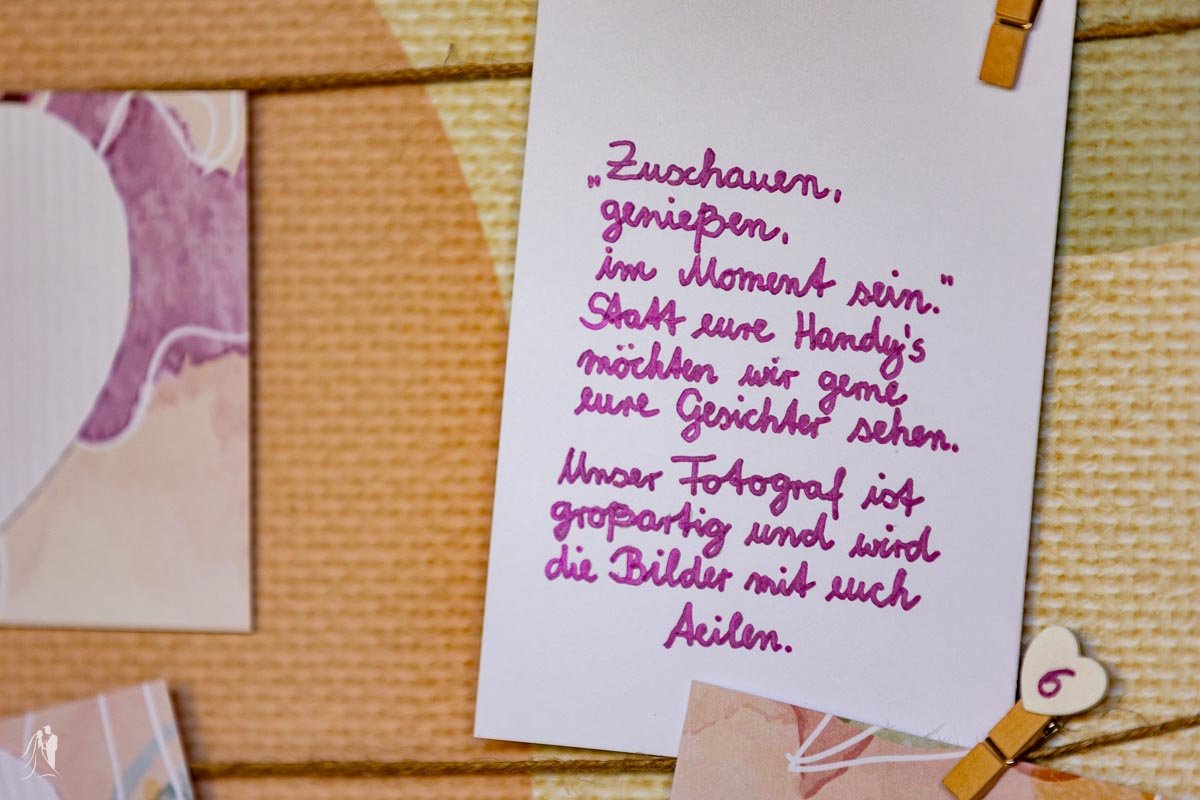 „Zuschauen,
genießen,
im Moment sein."
Statt eure Handy's
möchten wir gerne
eure Gesichter sehen.
Unser Fotograf ist
großartig und wird
die Bilder mit euch
teilen.
6